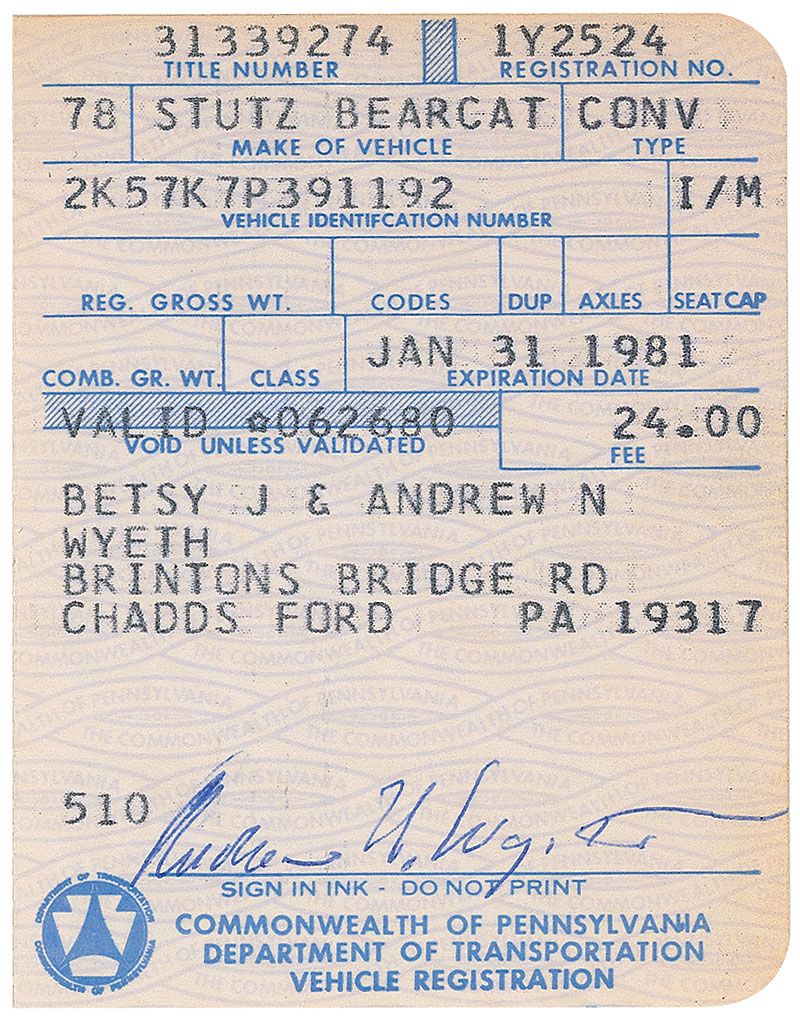 31339274 1Y2524
TITLE NUMBER REGISTRATION NO.
78 STUTZ BEARCAT CONV
MAKE OF VEHICLE TYPE
2K57K7P391192 I/M
VEHICLE IDENTIFCATION NUMBER
REG. GROSS WT. CODES DUP AXLES SEAT CAP
JAN 31 1981
COMB. GR. WT. CLASS EXPIRATION DATE
VALID ☆062680 24.00
VOID UNLESS VALIDATED FEE
BETSY J & ANDREW N
WYETH
BRINTONS BRIDGE RD
CHADDS FORD PA 19317
510 Andrew N. Wyeth
SIGN IN INK - DO NOT PRINT
DEPARTMENT OF TRANSPORTATION
COMMONWEALTH OF PENNSYLVANIA
COMMONWEALTH OF PENNSYLVANIA
DEPARTMENT OF TRANSPORTATION
VEHICLE REGISTRATION